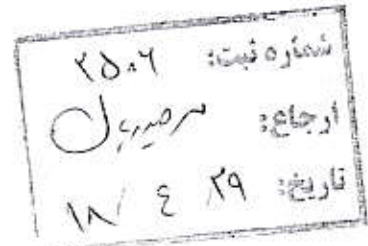 شماره ثبت: ۲۵۰۶
ارجاع:
تاریخ: ۱۸/ ٤ /۲۹